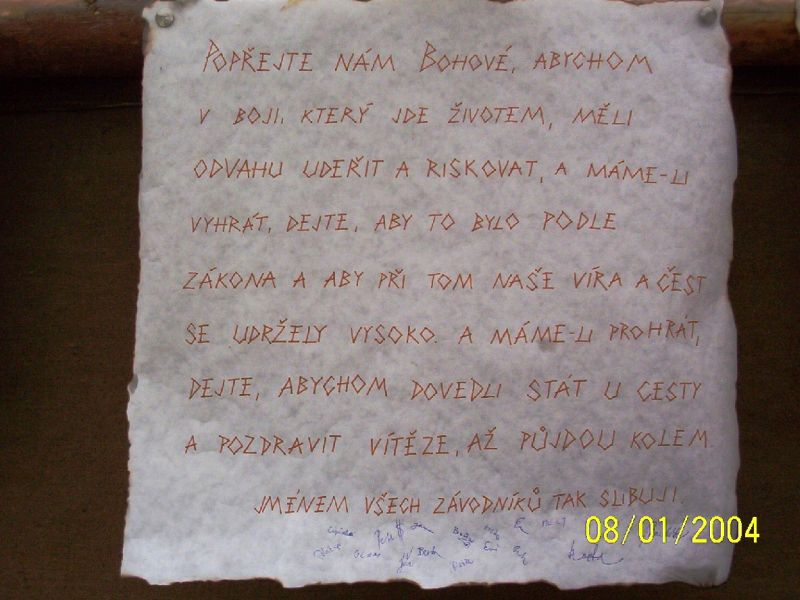 POPŘEJTE NÁM BOHOVÉ, ABYCHOM
V BOJI, KTERÝ JDE ŽIVOTEM, MĚLI
ODVAHU UDEŘIT A RISKOVAT, A MÁME-LI
VYHRÁT, DEJTE, ABY TO BYLO PODLE
ZÁKONA A ABY PŘI TOM NAŠE VÍRA A ČEST
SE UDRŽELY VYSOKO. A MÁME-LI PROHRÁT,
DEJTE, ABYCHOM DOVEDLI STÁT U CESTY
A POZDRAVIT VÍTĚZE, AŽ PŮJDOU KOLEM.
JMÉNEM VŠECH ZÁVODNÍKŮ TAK SLIBUJI.
08/01/2004